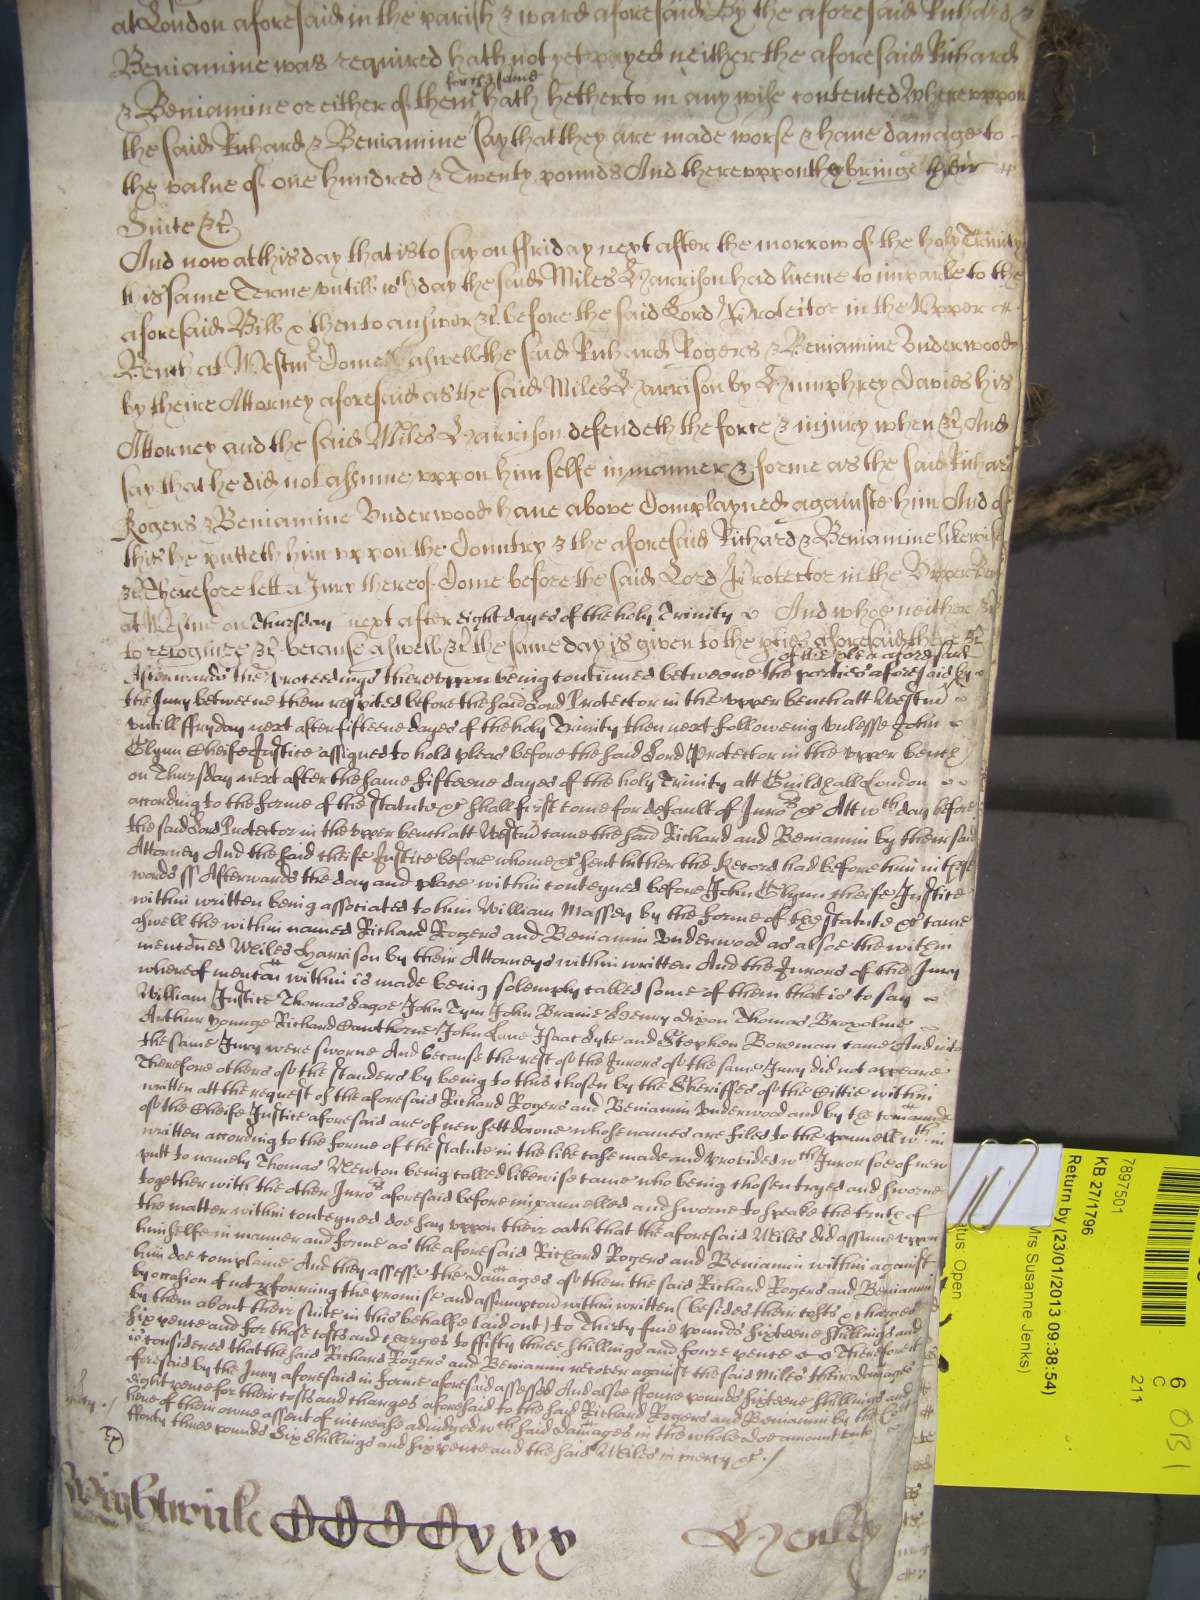 at London aforesaid in the parish & ward aforesaid by the aforesaid Richard &
Beniamine was required hath not yet payed neither the aforesaid Richard
for the same
& Beniamine or either of them hath hetherto in any wise contented Whereuppon
the said Richard & Beniamine say that they are made worse & haue damage to
the value of one hundred & Twenty pounds And thereuppon they bringe their
Suite &c
And now at this day that is to say on ffriday next after the morrow of the holy Trinity
this same Terme untill wch day the said Miles Harrison had licence to imparle to the
aforesaid Bill & then to answer &c before the said Lord Protector in the Upper
Bench at Westmr Come aswell the said Richard Rogers & Beniamine Underwood
by theire Attorney aforesaid as the said Miles Harrison by Humphrey Davies his
Attorney and the said Miles Harrison defendeth the force & iniury when &c And
say that he did not assume uppon him selfe in manner & forme as the said Richard
Rogers & Beniamine Underwood haue above Complayned againste him And of
this he putteth him uppon the Country & the aforesaid Richard & Beniamine likewise
&c Therefore lett a Jury thereof Come before the said Lord Protector in the Upper Bench
at Westmr on Thursday next after eight dayes of the holy Trinity And who neither &c
to recognize &c because aswell &c the same day is given to the pties aforesaid there &c
of the plea aforesaid
Afterwards the proceedings thereuppon being continued betweene the parties aforesaid by
the Jury betweene them respited before the said Lord Protector in the upper bench att Westmr
untill ffryday next after fifteene dayes of the holy Trinity then next followeing unlesse John
Glynn Cheife Justice assigned to hold pleas before the said Lord Protector in the upper bench
on Thursday next after the same fifteene dayes of the holy Trinity att Guildhall London
according to the forme of the statute &c shall first come for default of Jurors &c Att wch day before
the said Lord Protector in the upper bench att Westmr came the said Richard and Beniamin by their said
Attorney And the said cheife Justice before whome &c sent hither the Record had before him in these
words ss Afterwards the day and place within conteyned before John Glynn cheife Justice
within written being associated to him William Massey by the forme of the statute &c came
aswell the within named Richard Rogers and Beniamin Underwood as alsoe the within
mentioned Miles Harrison by their Attorneys within written And the Jurors of the Jury
whereof mention within is made being solemnly called some of them that is to say
William Justice Thomas Sagoe John Tym John Braine Henry Dixon Thomas Broxolme
Arthur Younge Richard Hawthorne John Lane Isaac Lyte and Stephen Boreman came And into
the same Jury were sworne And because the rest of the Jurors of the same Jury did not appeare
Therefore others of the standers by being to this chosen by the Sheriffes of the Cittie within
written att the request of the aforesaid Richard Rogers and Beniamin Underwood and by the comaunde
of the Cheife Justice aforesaid are of new sett downe whose names are filed to the pannell wthin
written according to the forme of the statute in the like case made and provided wch Juror soe of new
putt to namely Thomas Newton being called likewise came who being chosen tryed and sworne
together with the other Jurors aforesaid before impannelled and sworne to speake the truth of
the matter within conteyned doe say uppon their oath that the aforesaid Miles did assume uppon
himselfe in manner and forme as the aforesaid Richard Rogers and Beniamin within against
him doe complaine And they assesse the damages of them the said Richard Rogers and Beniamin
by occasion of not pforming the promise and assumption within written (besides their costs & charges
by them about their suite in this behalfe laid out) to Thirty fiue pounds sixteene shillings and
six pence and for those costs and charges to ffifty three shillings and foure pence Therefore it
is considered that the said Richard Rogers and Beniamin recover against the said Miles their damages
aforesaid by the Jury aforesaid in forme aforesaid assessed And alsoe ffoure pounds sixteene shillings and
eight pence for their costs and charges aforesaid to the said Richard Rogers and Beniamin by the Court
here of their owne assent of increase adiudged wch said damages in the whole doe amount unto
fforty three pounds six shillings and six pence and the said Miles in mercy &c
Wightwicke
Henley
7897501
KB 27/1796
Return by (23/01/2013 09:38:54)
Mrs Susanne Jenks)
Status Open
6
C
211